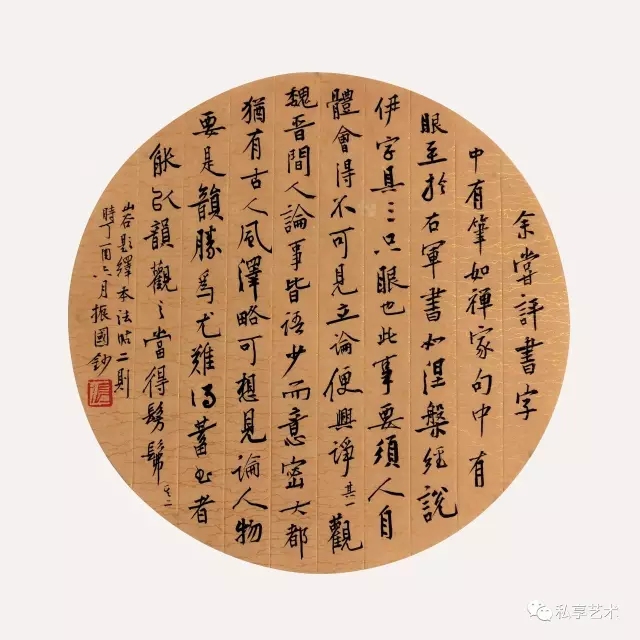 余嘗評書字
中有筆如禪家句中有
眼至於右軍書如涅槃經説
伊字具三只眼也此事要須人自
體會得不可見立論便興諍其一觀
魏晉間人論事皆語少而意密大都
猶有古人風澤略可想見論人物
要是韻勝爲尤難得蓄書者
能以韻觀之當得髣髴其二
山谷題繹本法帖二則
時丁酉六月振國鈔
私享艺术